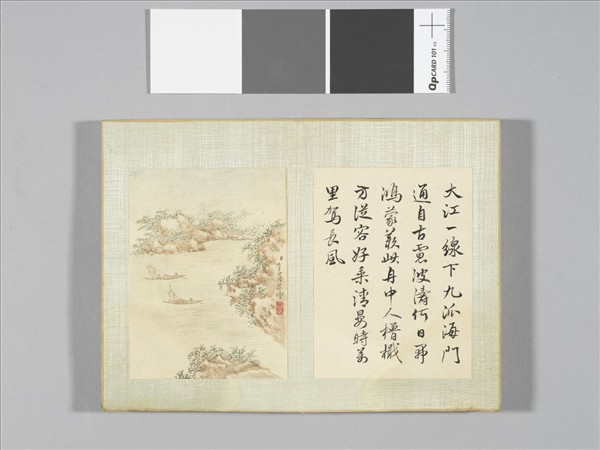 大江一線下九派海門
通自古波濤何日
鴻蒙羨此舟中人檝
方從容好乘清晏時萬
里駕長風
QPCARD 101